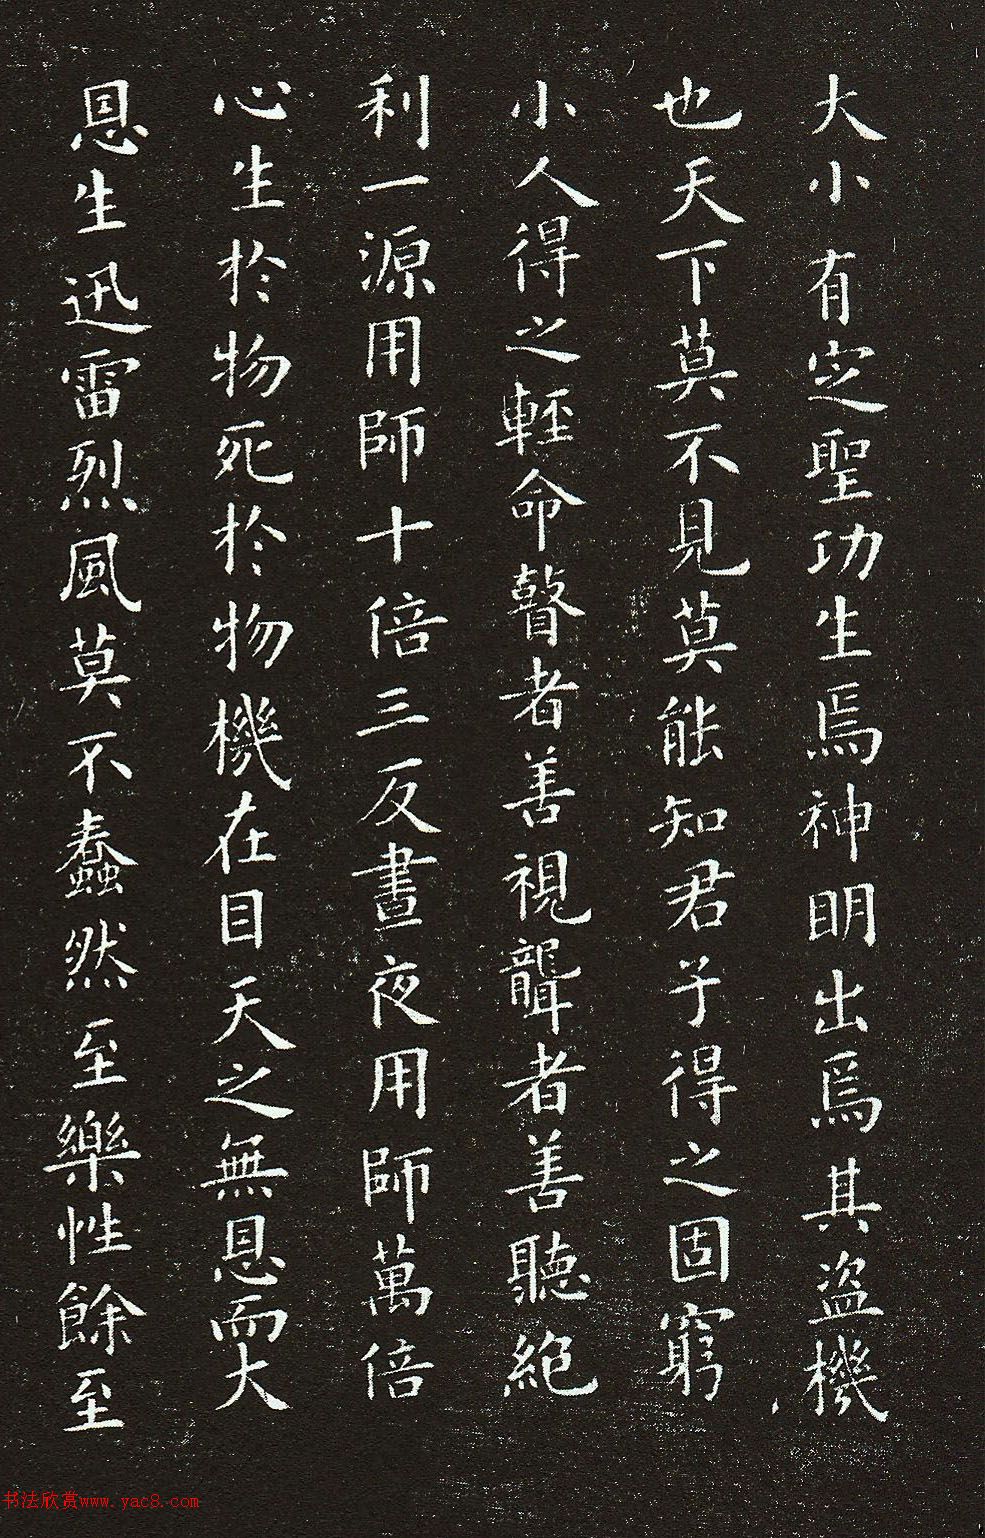 大小有定聖功生焉神明出焉其盜機
也天下莫不見莫能知君子得之固窮
小人得之輕命瞽者善視聾者善聽絕
利一源用師十倍三反晝夜用師萬倍
心生於物死於物機在目天之無恩而大
恩生迅雷烈風莫不蠢然至樂性餘至
书法欣赏www.yac8.com